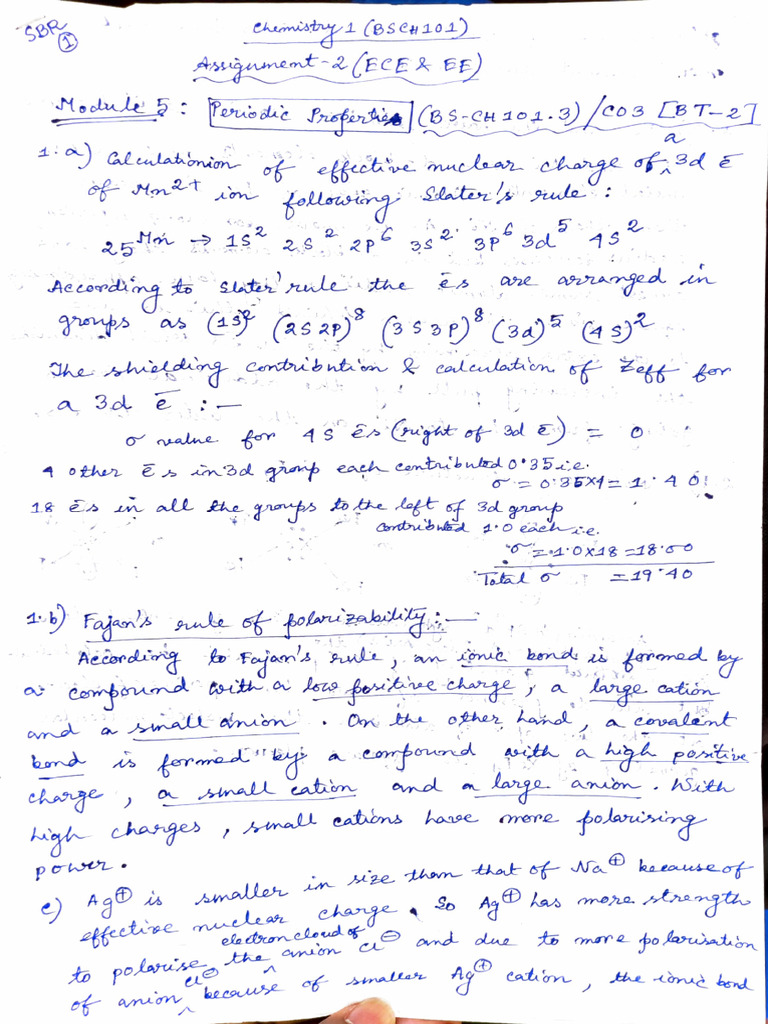 SBR
①
Chemistry 1 (BSCH101)
Assignment-2 (ECE & EE)
Module 5 : Periodic Properties (BS-CH101.3)/CO3 [BT-2]
1. a) Calculationion of effective nuclear charge of a 3d ē
of Mn²⁺ ion following Slater's rule :
25Mn → 1S² 2S² 2P⁶ 3S² 3P⁶ 3d⁵ 4S²
According to Slater'rule the ēs are arranged in
groups as (1S)² (2S2P)⁸ (3S3P)⁸ (3d)⁵ (4S)²
The shielding contribution & calculation of Zeff for
a 3d ē :—
σ value for 4S ēs (right of 3d ē) = 0
4 other ēs in 3d group each contributed 0.35 i.e.
σ = 0.35×4 = 1.40
18 ēs in all the groups to the left of 3d group
contributed 1.0 each i.e.
σ = 1.0×18 = 18.00
Total σ = 19.40
1. b) Fajan's rule of polarizability :—
According to Fajan's rule, an ionic bond is formed by
a compound with a low positive charge, a large cation
and a small anion. On the other hand, a covalent
bond is formed by a compound with a high positive
charge, a small cation and a large anion. With
high charges, small cations have more polarising
power.
c) Ag⊕ is smaller in size than that of Na⊕ because of
effective nuclear charge. So Ag⊕ has more strength
to polarise the electron cloud of anion Cl⊖ and due to more polarisation
of anion Cl⊖ because of smaller Ag⊕ cation, the ionic bond